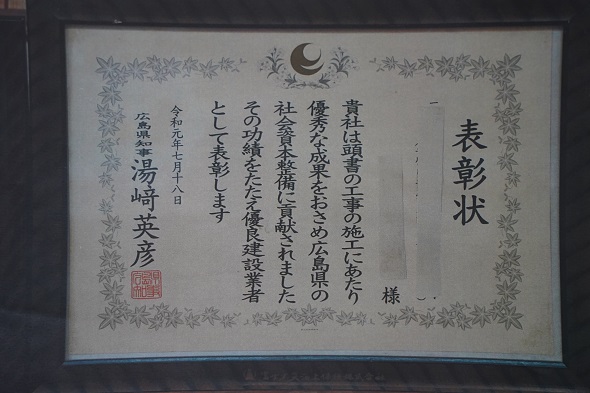 表彰状
様
貴社は頭書の工事の施工にあたり
優秀な成果をおさめ広島県の
社会資本整備に貢献されました
その功績をたたえ優良建設業者
として表彰します
令和元年七月十八日
広島県知事 湯﨑英彦